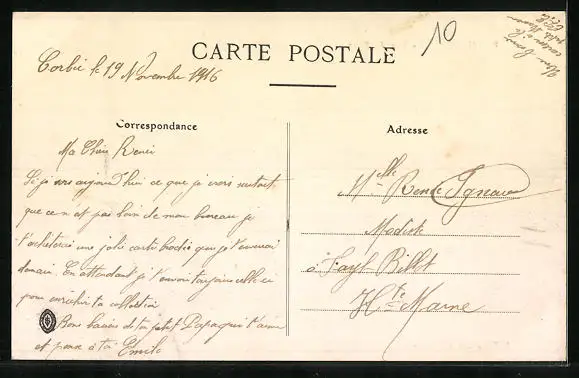 CARTE POSTALE
10
Corbie le 19 Novembre 1916
Correspondance
Adresse
Ma Chère Renée
Si je vois aujourd'hui ce que je crois surtout
que ce n'est pas loin de mon bureau je
t'achèterai une jolie carte brodée que je t'enverrai
demain. En attendant je t'envoie toujours celle ci
pour enrichir ta collection
Bons baisers de ton petit Papa qui t'aime
et pense à toi Emile
Melle Renée
Modiste
à Fayl-Billot
Hte Marne